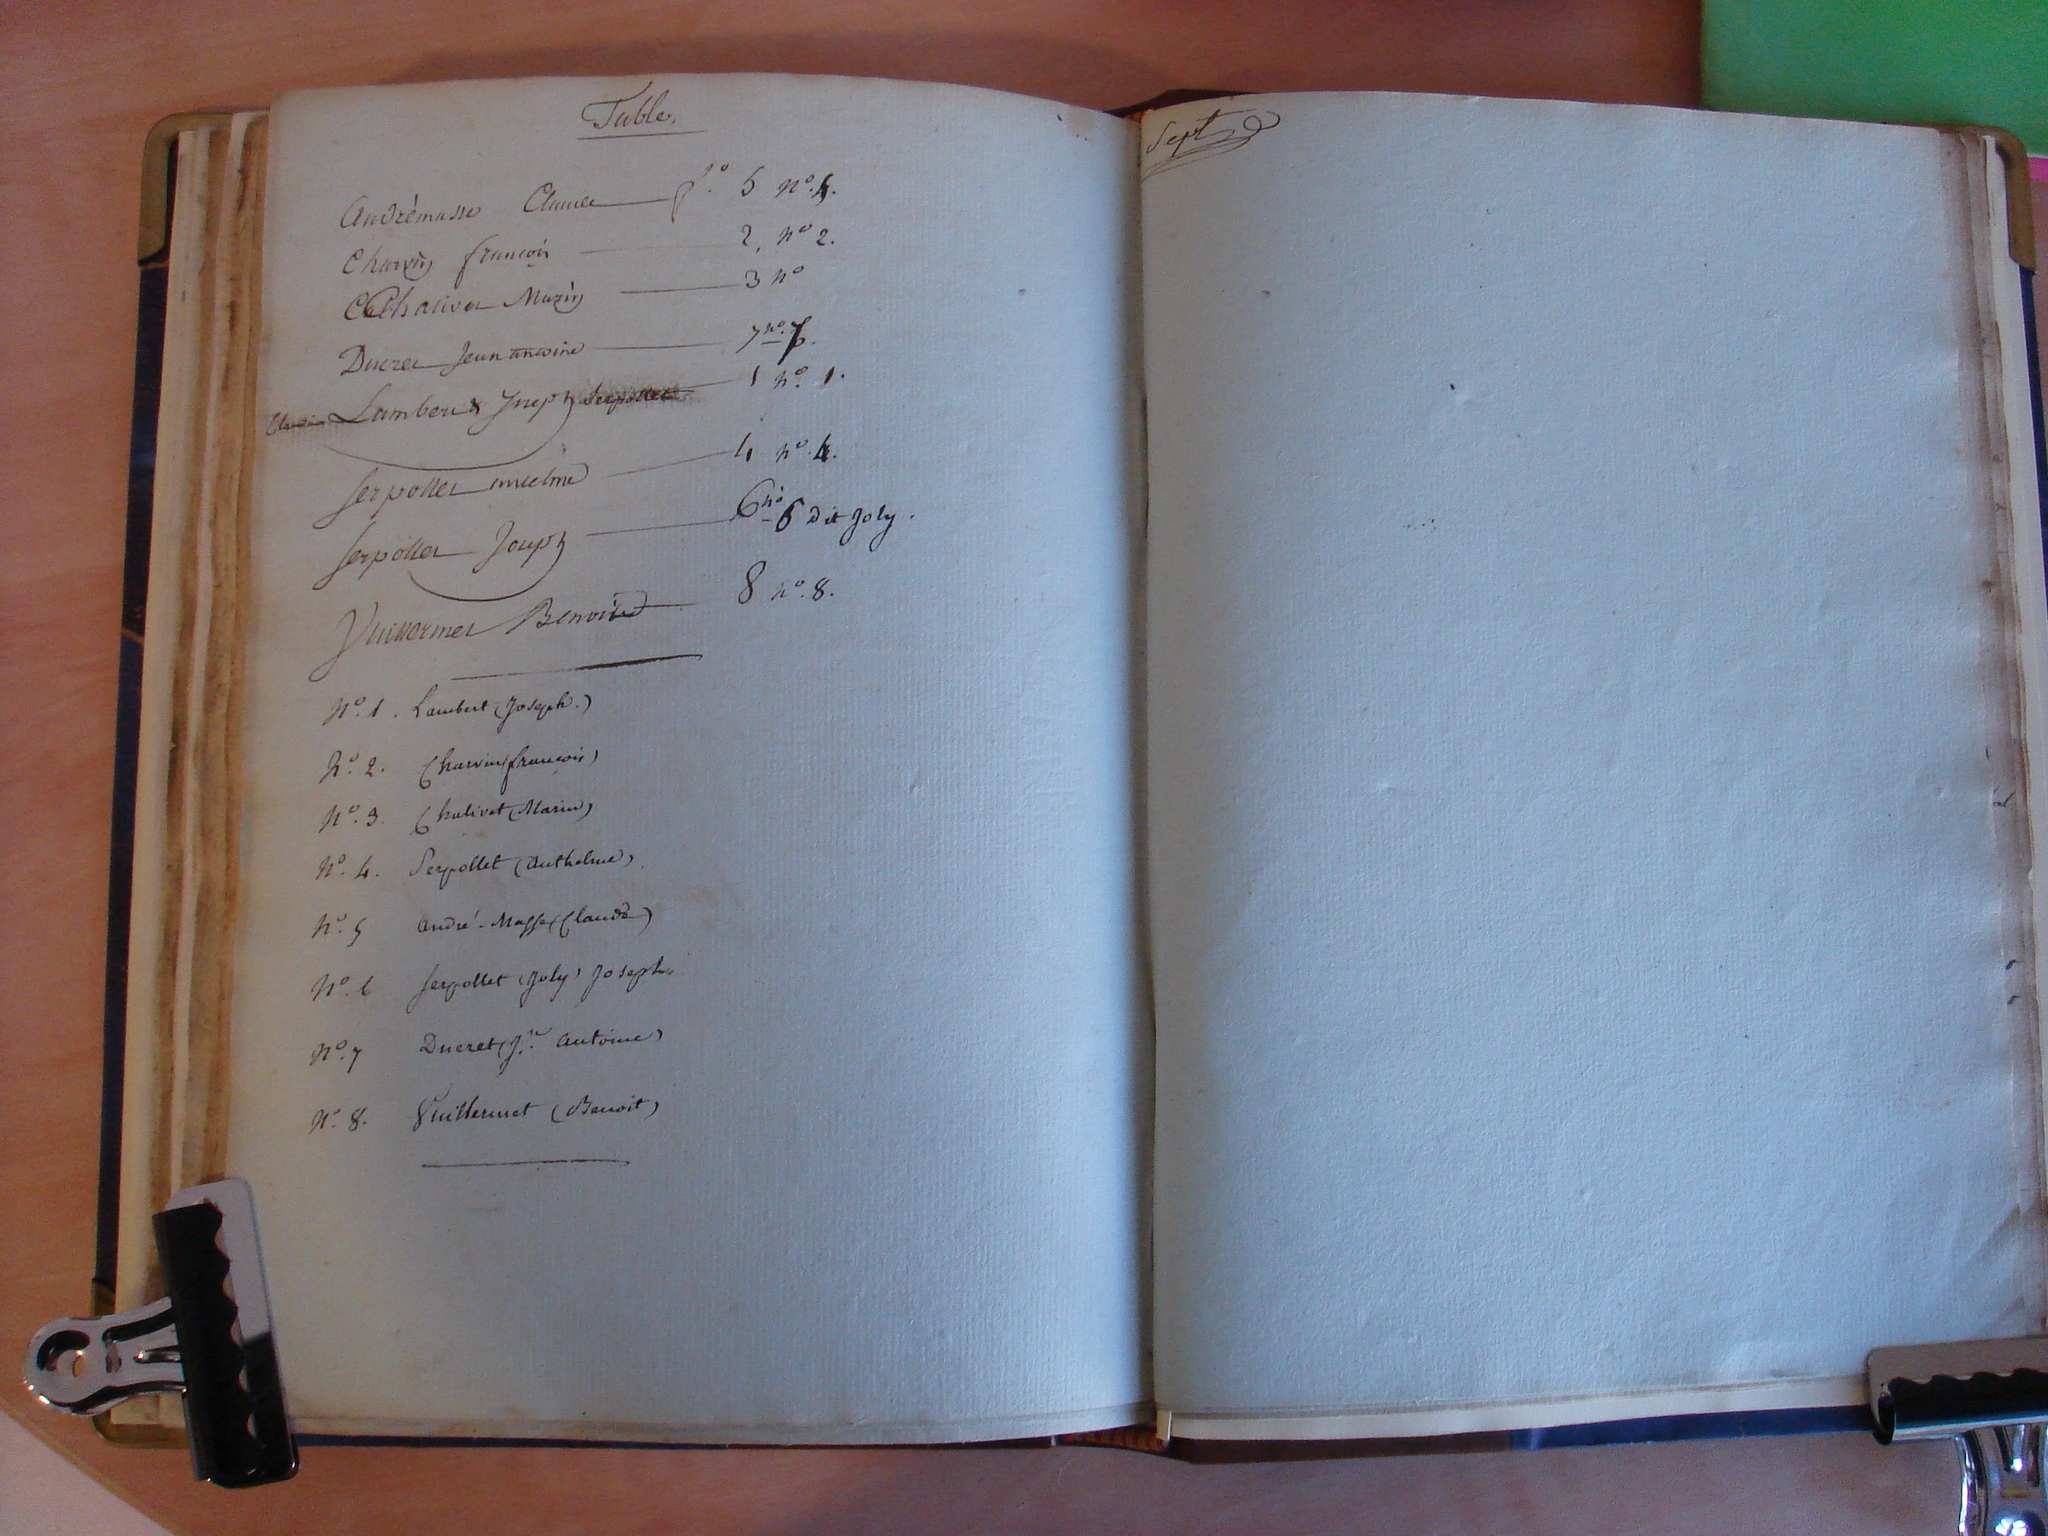 Table.
Andrémasse Claude fo. 5 No. 5.
Charvin françois 2, No 2.
Chalivet Marin 3 No
Ducret Jean antoine 7 No. 7.
Lambert Joseph Serpollet 1 No. 1.
Serpollet antelme 4 No. 4.
Serpollet Joseph 6 No 6 dit Joly.
Vuillermet Benoit 8 No. 8.
No. 1. Lambert (Joseph.)
No. 2. Charvin (françois)
No. 3. Chalivet (Marin)
No. 4. Serpollet (Anthelme)
No. 5 André-Masse (Claude)
No. 6 Serpollet (Joly) Joseph.
No. 7 Ducret (Jn. Antoine)
No. 8. Vuillermet (Benoit)
Sept